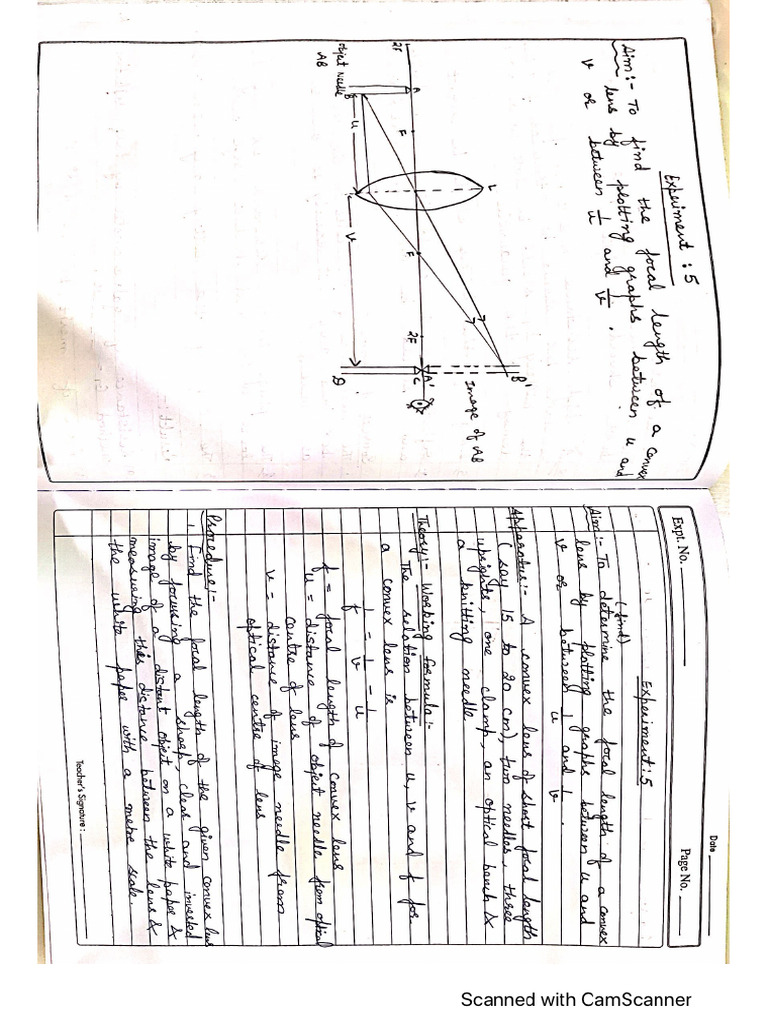 Experiment : 5
Aim :- To find the focal length of a convex
lens by plotting graphs between u and
v or between 1/u and 1/v .
2F
A
F
L
F
2F
A'
C
B'
B
Object Needle
AB
u
v
D
Image of AB
Date
Expt. No.
Page No.
Experiment : 5
(find)
Aim :- To determine the focal length of a convex
lens by plotting graphs between u and
v or between 1/u and 1/v .
Apparatus :- A convex lens of short focal length
(say 15 to 20 cm), two needles, three
uprights, one clamp, an optical bench &
a knitting needle
Theory:- Working formula:-
The relation between u, v and f for
a convex lens is
1/f = 1/v - 1/u
f = focal length of convex lens
u = distance of object needle from optical
centre of lens
v = distance of image needle from
optical centre of lens
Procedure:-
1. Find the focal length of the given convex lens
by focusing a sharp, clear and inverted
image of a distant object on a white paper &
measuring this distance between the lens &
the white paper with a metre scale.
Teacher's Signature :
Scanned with CamScanner